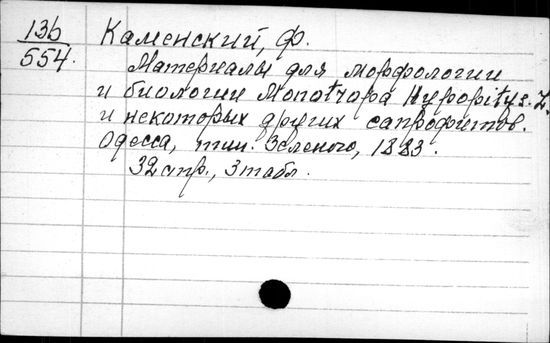 136
554.
Каменский, Ф.
Материалы для морфологии
и биологии Monotropa Hypopitys. L.
и некоторых других сапрофитов.
Одесса, тип. Зеленого, 1883.
32 стр., 3 табл.